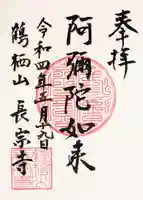 奉拝
阿彌陀如来
令和四年三月十九日
鶴栖山 長宗寺